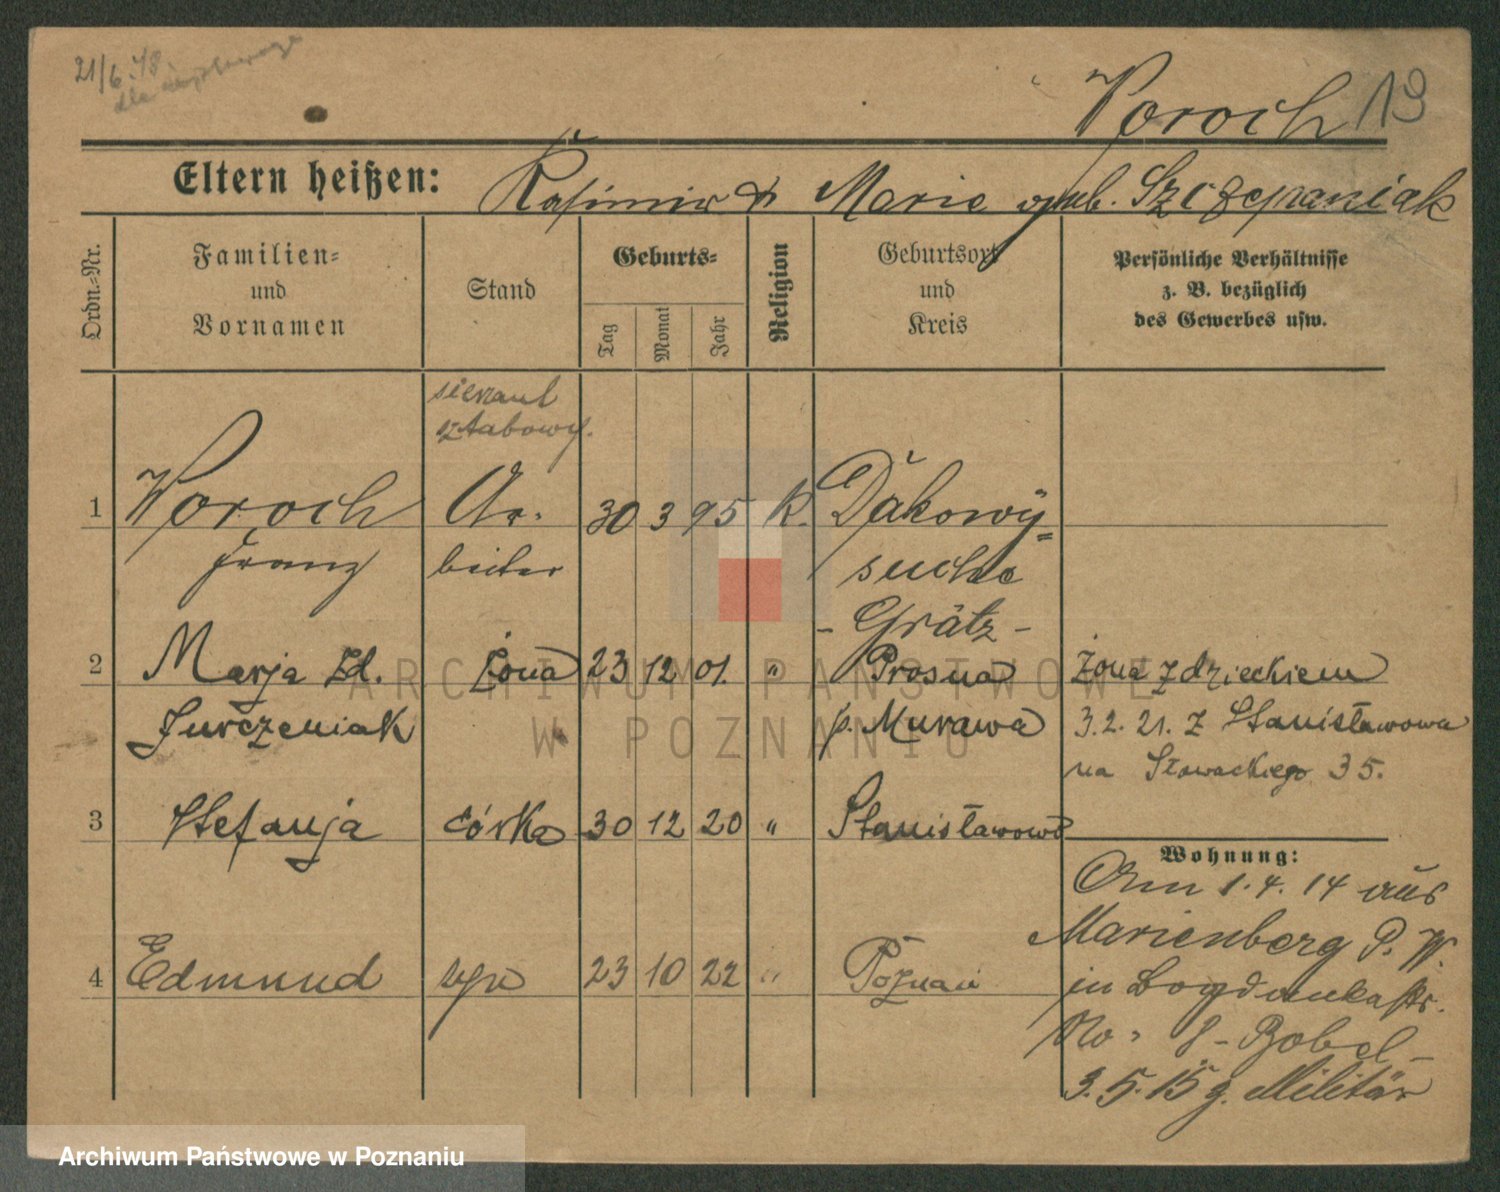 21/6.48.
dla
Woroch 19
Eltern heißen: Kasimir & Marie geb. Szczepaniak
Ordn.-Nr.
Familien-
und
Vornamen
Stand
Geburts-
Tag
Monat
Jahr
Religion
Geburtsort
und
Kreis
Persönliche Verhältnisse
z. B. bezüglich
des Gewerbes usw.
sierżant
sztabowy.
1 Woroch Ar- 30 3 95 K. Dakowy-
Franz beiter suche
- Grätz -
2 Marja zd. żona 23 12 01. " Prosna żona z dzieckiem
Jurczeniak p. Murawa 3.2.21. z Stanisławowa
na Słowackiego 35.
3 Stefanja córka 30 12 20 " Stanisławowo
Wohnung:
Am 1.4.14 aus
Marienberg P. W.
4 Edmund syn 23 10 22 " Poznań
in Bogdankastr.
No. 8 - Bobel -
3.5.15 z. Militär
ARCHIWUM PAŃSTWOWE
W POZNANIU
Archiwum Państwowe w Poznaniu